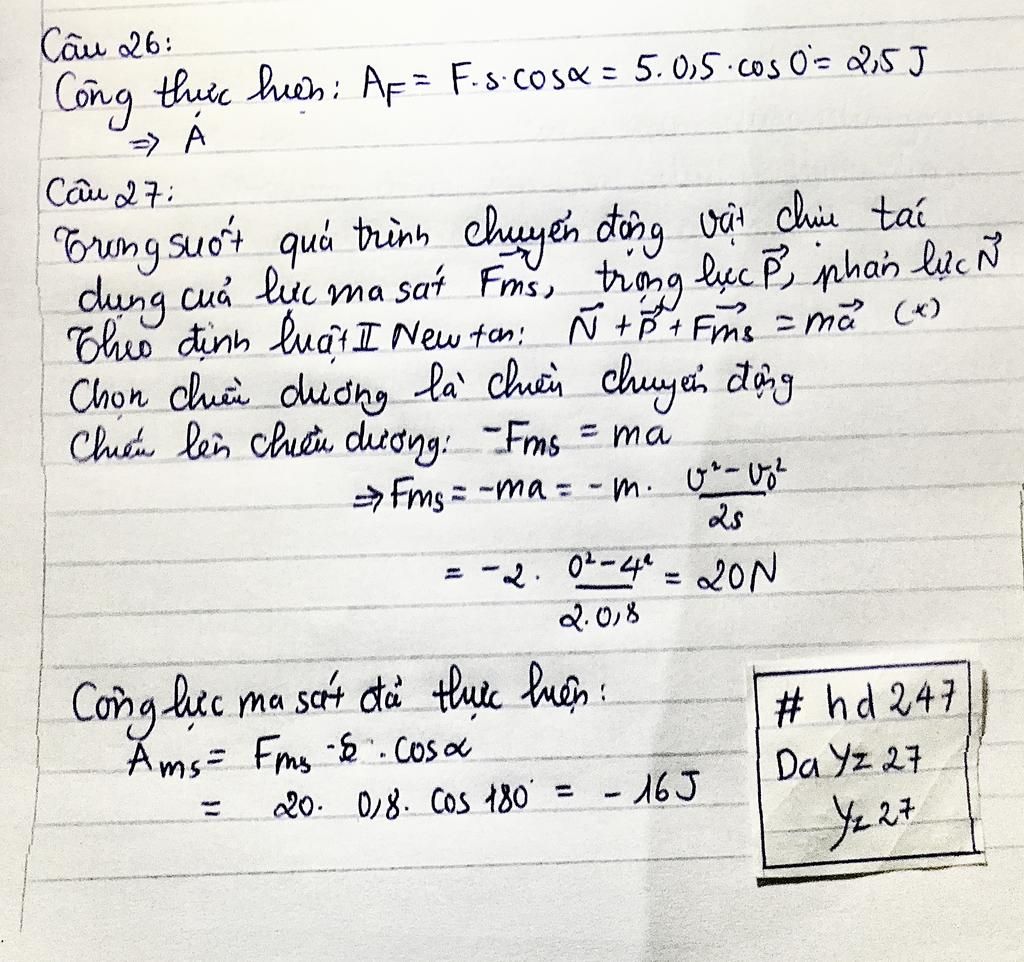 Câu 26:
Công thực hiện: A_F = F.s.cosα = 5.0,5.cos 0° = 2,5 J
⇒ A
Câu 27:
Trong suốt quá trình chuyển động vật chịu tác
dụng của lực ma sát F⃗ms, trọng lực P⃗, phản lực N⃗
Theo định luật II Newton: N⃗ + P⃗ + F⃗ms = ma⃗ (*)
Chọn chiều dương là chiều chuyển động
Chiếu lên chiều dương: -Fms = ma
⇒ Fms = -ma = -m. (v² - v₀²)/2s
= -2. (0² - 4²)/2.0,8 = 20N
Công lực ma sát đã thực hiện:
Ams = Fms .s .cosα
= 20. 0,8. cos 180° = -16J
# hd 247
Da Yz 27
Yz 27